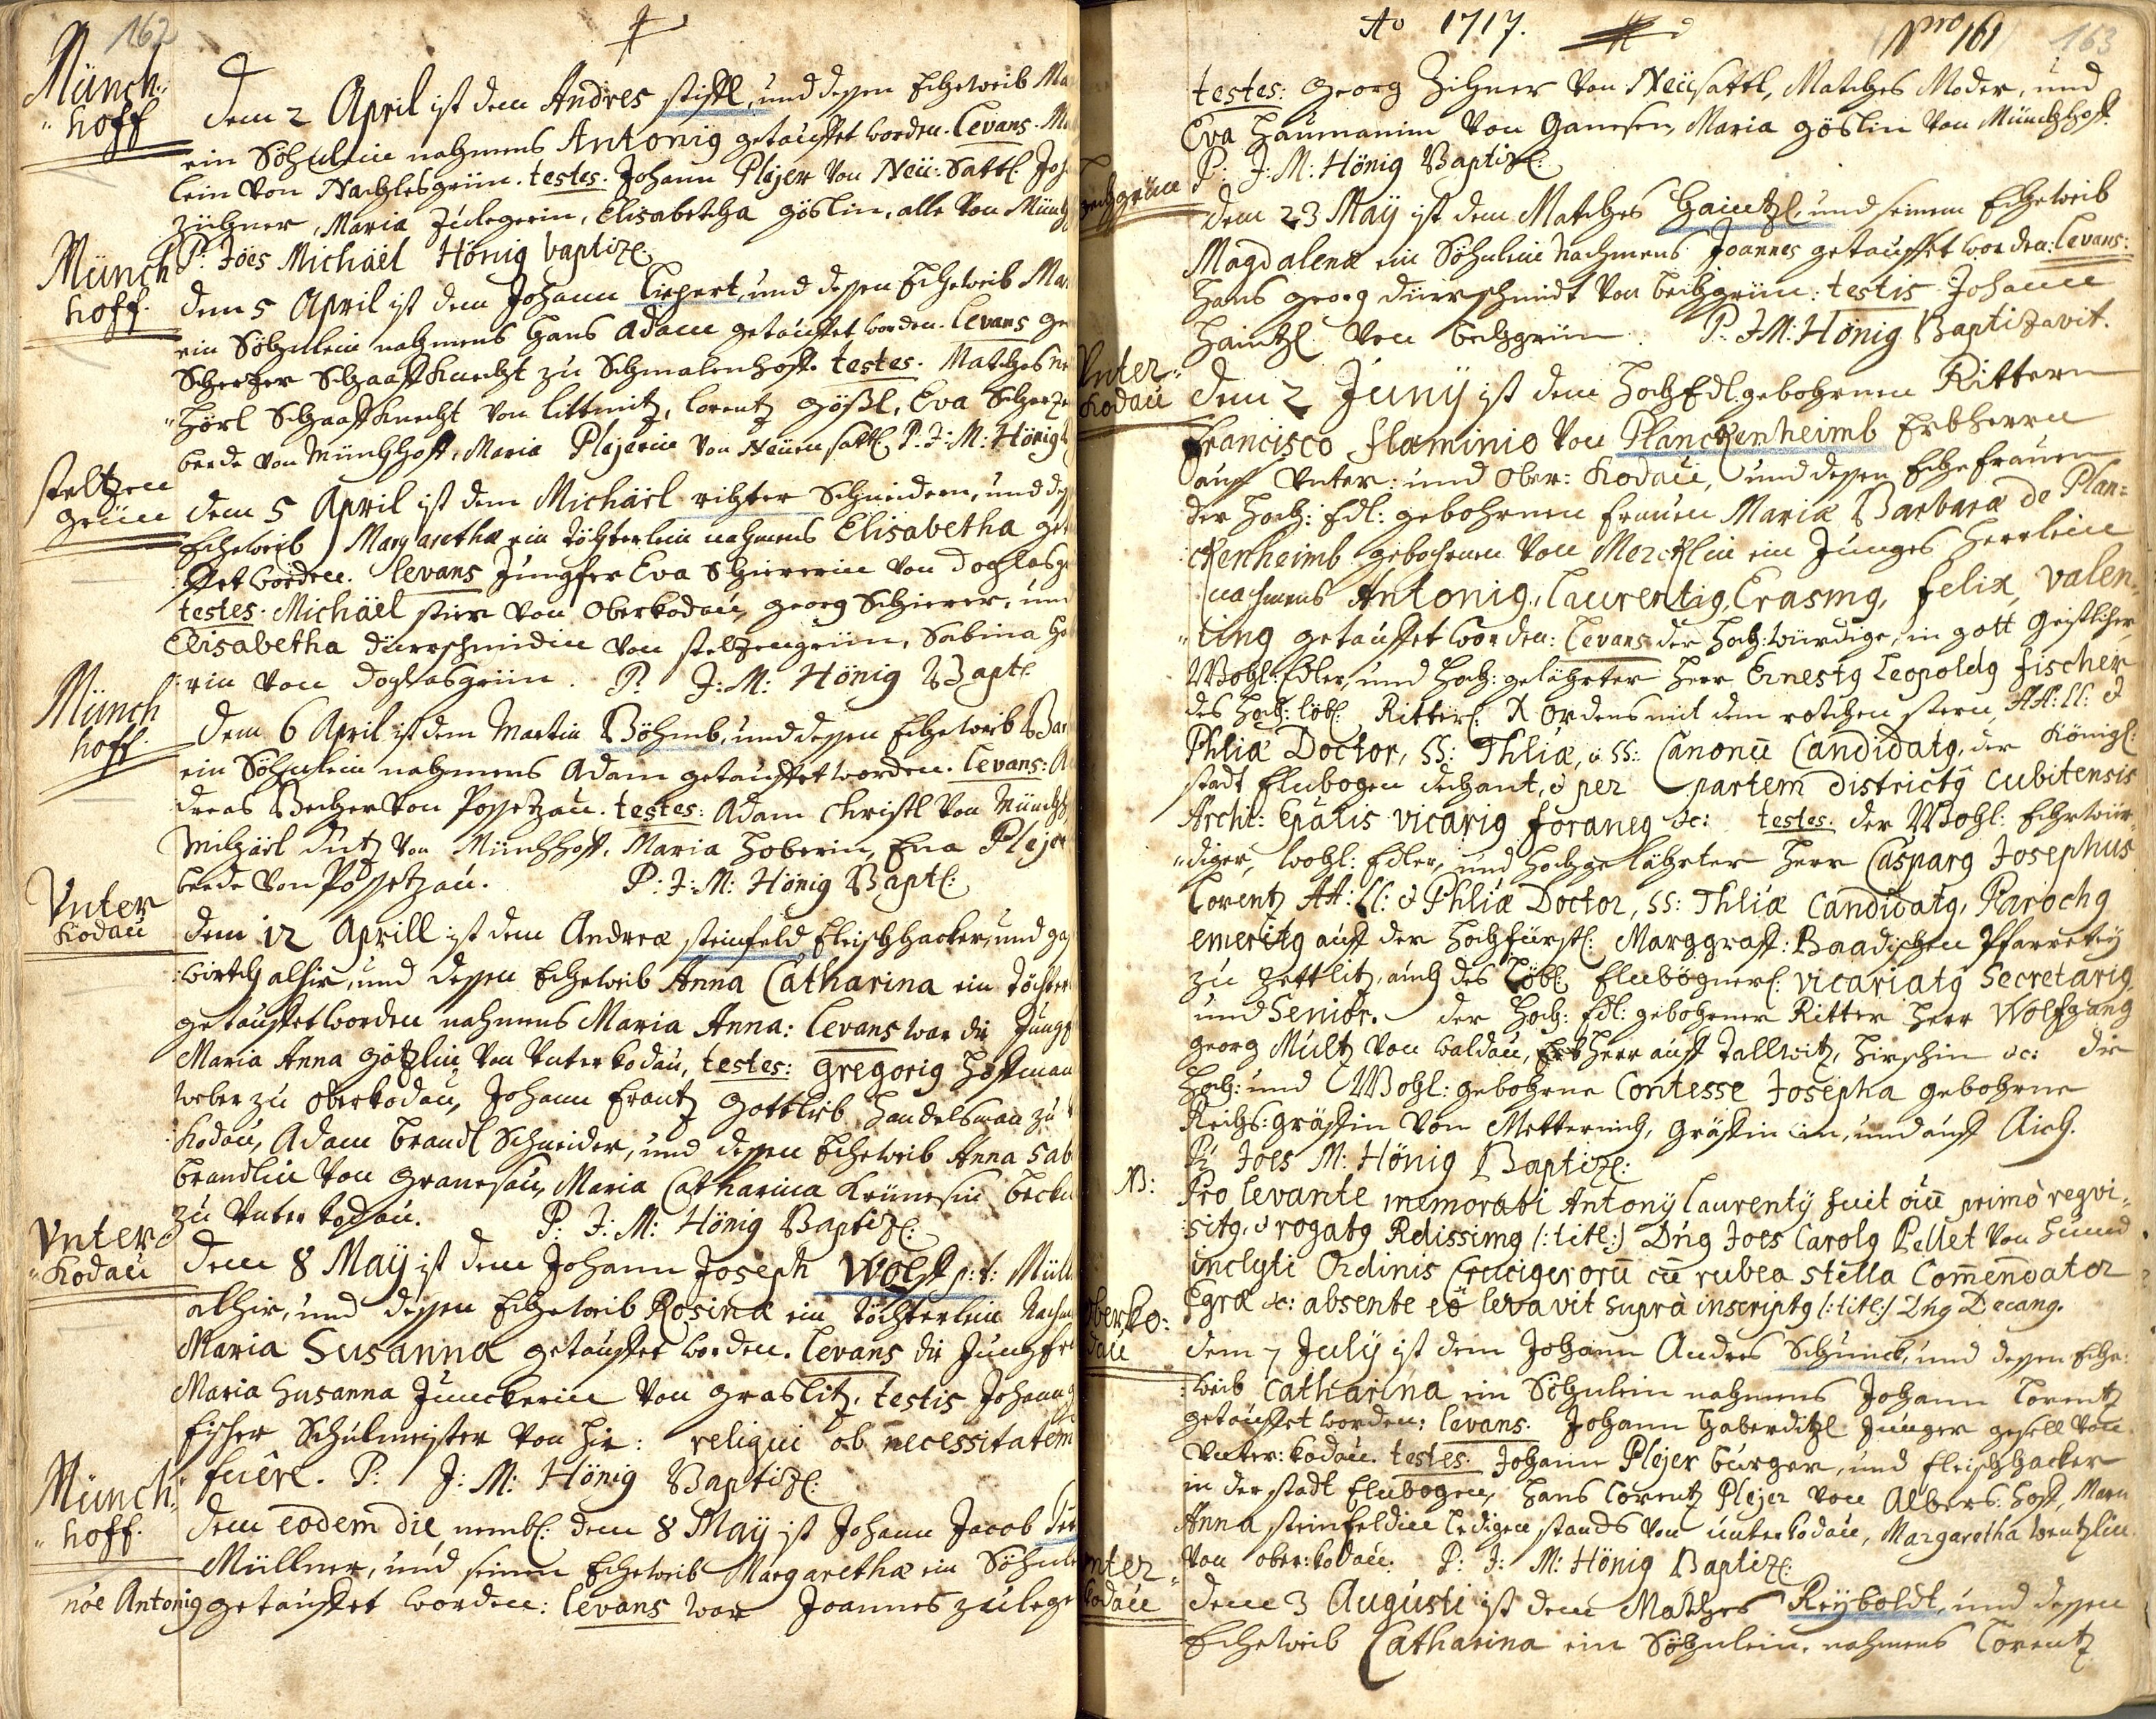 162
Münch
hoff
Dem 2 April ist dem Andres stifl, und dessen Eheweib Ma
ein Söhnlein nahmens Antonig getauffet worden. Levans. Ma
lein von Nachlesgrün. testes. Johann Plejer von Neü: Sattl. Joh
Zühner, Maria Zulegerin, Elisabetha göslin, alle von Münch
P: Jöes Michäel Hönig baptize.
Münch
hoff.
dem 5 April ist dem Johann Liepert, und dessen Eheweib Mar
ein Söhnlein nahmens Hans Adam getauffet worden. Levans Ge
Schertzer Schaaff Knecht zu Schmalenhoff. testes. Mathes
hörl Schaaff Knecht von littmitz, Lorentz gößl, Eva Schertze
beede von Münchhoff, Maria Plejerin von Neüensattl. P. J: M: Hönig
steltzen
grün
dem 5 April ist dem Michäel richter Schneidern, und dess
Eheweib Margaretha ein töchterlein nahmens Elisabetha get
ffet worden. levans Jungfer Eva Schiererin von Doglasg
testes. Michäel stier von Oberkodau, Georg Schierer, und
Elisabetha dürrschmidin von steltzengrün, Sabina
rin von Doglasgrün. P. J: M: Hönig Bapt:
Münch
hoff.
Dem 6 April ist dem Martin Böhmb, und dessen Eheweib Bar
ein Söhnlein nahmens Adam getauffet worden. Levans: An
dreas Becher von Possetzau. testes: Adam Christl von Münch
Michäel dutz von Münchhoff, Maria Hoberin, Eva Plejer
beede von Possetzau. P: J: M: Hönig Bapt:
Vnter
Kodau
dem 12 Aprill ist dem Andrea steinfeld fleischhacker, und gas
wirth alhir, und dessen Eheweib Anna Catharina ein töchter
getauffet worden nahmens Maria Anna: Levans war die Jungf
Maria Anna götzlin von Vnterkodau, testes: Gregorig Hoffman
weber zu Oberkodau, Johann Frantz Gottlieb Handelsman zu
Kodau, Adam Brandl Schneider, und dessen Eheweib Anna Sab
Brandlin von Granesau, Maria Catharina Krünesin becke
zu Vnterkodau. P: J: M: Hönig Baptize:
Vnter
Kodau
Dem 8 Maÿ ist dem Johann Joseph Wolff p:t: Müll
alhir, und dessen Eheweib Rosina ein töchterlein Nahm
Maria Susanna getauffet worden. Levans die Jungfr
Maria Susanna Junckerin von Graslitz. testis Johann
fischer Schulmeister von hir: reliqui ob necessitatem
fuêre. P: J: M: Hönig Baptize:
Münch
hoff.
Dem eodem die nembl: dem 8 Maÿ ist Johann Jacob
Müllner, und seinen Eheweib Margaretha ein Söhnle
nöe Antonig getauffet worden: levans war Joannes Zulege
Ao 1717.
pro 161
163
testes: Georg Zihner von Neüsattl, Mathes Moder, und
Eva Haumanin von Ganesen, Maria göslin von Münchhoff.
P: J: M: Hönig Baptize:
grün
Dem 23 Maÿ ist dem Mathes Haintzl, und seinem Eheweib
Magdalena ein Söhnlein Nahmens Joannes getauffet worden: Levans:
Hans Georg dürrschmidt von bechgrün: testis Johann
Haintzl von bechgrün. P: J M: Hönig Baptizavit.
Vnter
Kodau
Dem 2 Junÿ ist dem Hoch Edl. gebohrnen Rittern
Francisco flaminio von Planckenheimb Erbherrn
auff Vnter: und Ober: Kodau, und dessen Ehe frauen
der Hoch: Edl: gebohrnen frauen Mariæ Barbara de Plan=
ckenheimb gebohrnen von Mercklin ein Junges Herrlein
nahmens Antonig, Laurentig, Erasmg, Felix, Valen=
ting getauffet worden: Levans der Hoch: würdige, in gott Geistlicher
Wohl: Edler, und Hoch: gelährter Herr Ernestg Leopoldg fischer
des Hoch: löbl: Ritterl: X Ordens mit dem rothen stern, AA: LL: &
Phliæ Doctor, SS: Thliæ, ac SS: Canonū Candidatg, der Königl:
stadt Elnbogen dechant, & per partem districtg Cubitensis
Archi: Epālis vicarig foraneg &c: testes. der Wohl: Ehrwür
diger, wohl: Edler, und Hoch gelährter Herr Casparg Josephus
Lorentz AA: LL: & Phliæ Doctor, SS: Thliæ Candidatg, Parochg
emeritg auff der Hochfürstl: Marggraff: Baadischen Pfarreteÿ
zu Zettlitz, auch des Löbl: Elnbögnerl: vicariatg Secretarig,
und Senior. der Hoch: Edl: gebohrner Ritter Herr Wolfgang
Georg Multz von Waldau, Erb Herr auff Tallwitz, Hirschin &c: die
Hoch: und Wohl: gebohrne Contesse Josepha gebohrne
Reichs: gräffin von Metternich, gräffin in, und auff Aich.
P: Joes M: Hönig Baptize:
NB:
Pro levante memorati Antonÿ Laurentÿ fuit oīū primò reqvi=
sitg, & rogatg Rdissimg (: titl:) Dng Joes Carolg Pellet von
inclyti Ordinis Crucigerorū cū rubea stella Comendator
Egræ &c: absente eō levavit suprà inscriptg (: titl:) Dng Decang.
Oberko:
dau
dem 7 Julÿ ist dem Johann Andres Schunck, und dessen Ehe:
weib Catharina ein Söhnlein nahmens Johann Lorentz
getauffet worden: levans. Johann Haberditzl Junger gesell von
Vnter: kodau. testes. Johann Plejer burger, und fleischhacker
in der stadt Elnbogen, Hans Lorentz Plejer von Albers: hoff, Maria
Anna steinfeldin ledigen stands von unterkodau, Margaretha Wentzlin
von ober: kodau. P: J: M: Hönig Baptize:
nter
kodau
Dem 3 Augusti ist dem Mathes Reÿboldt, und dessen
Eheweib Catharina ein Söhnlein, nahmens Lorentz